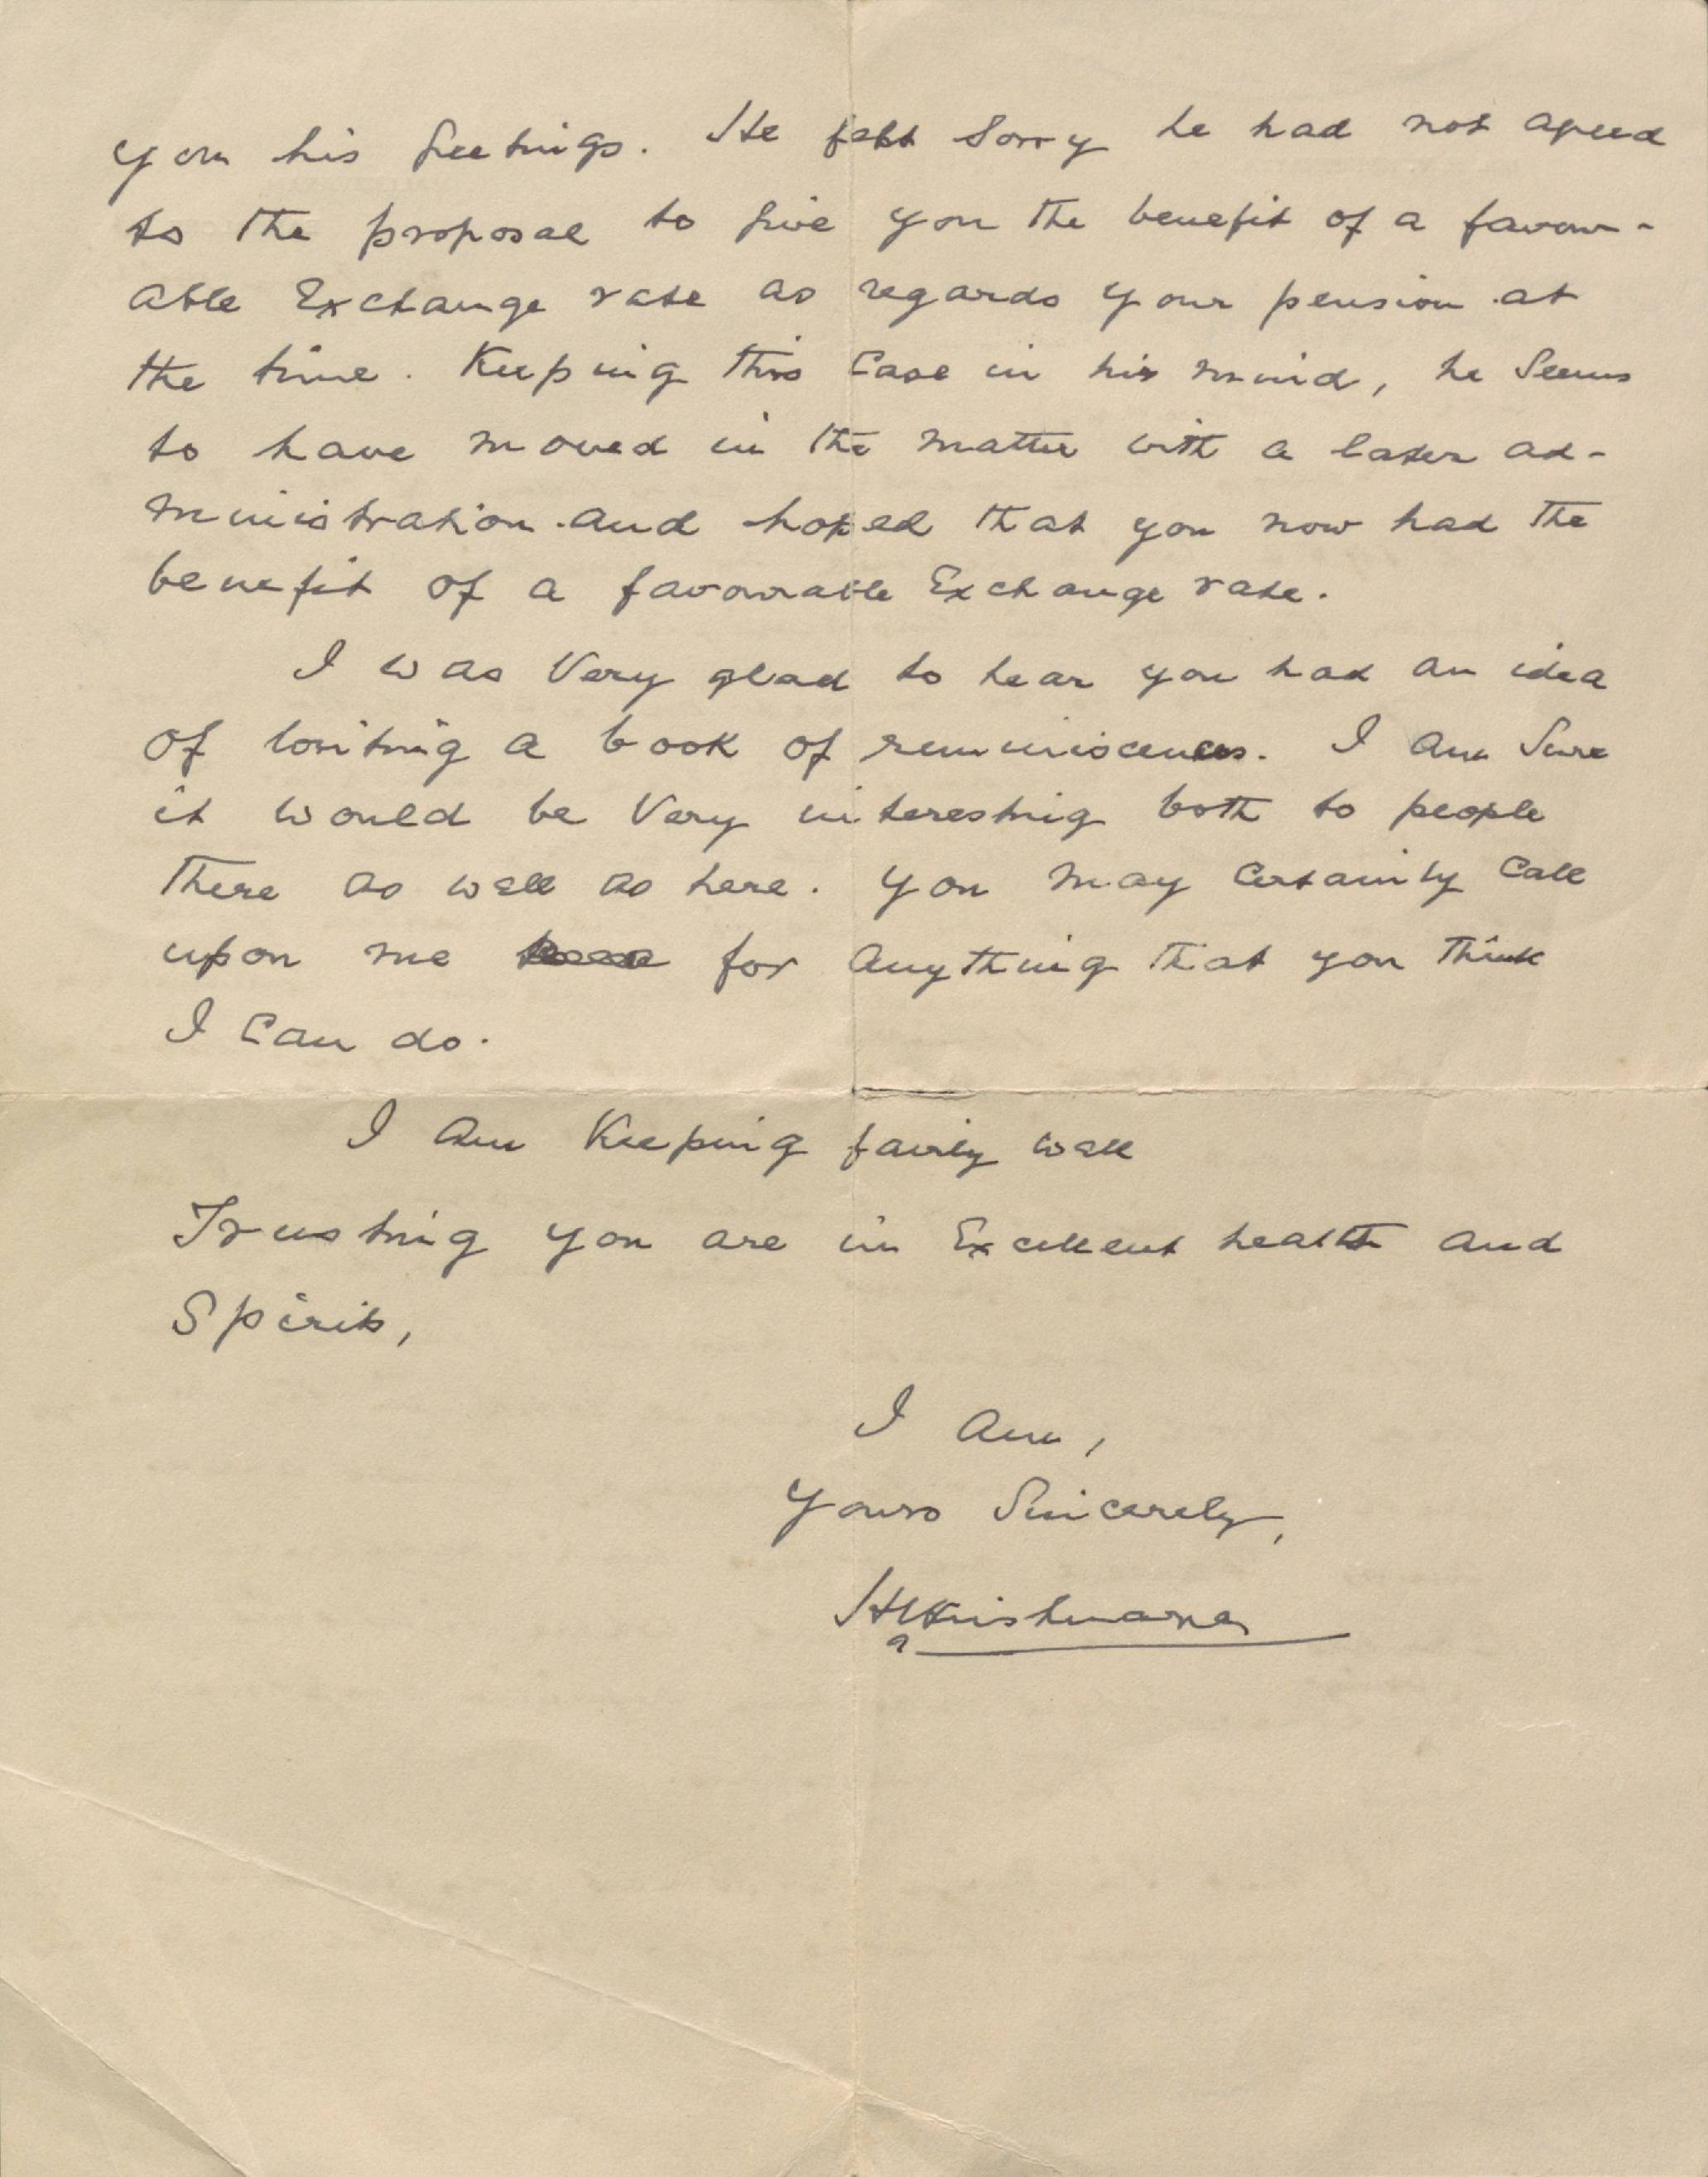 you his greetings. He felt sorry he had not agreed
to the proposal to give you the benefit of a favour-
able Exchange rate as regards your pension at
the time. Keeping this Case in his mind, he Seems
to have moved in the matter with a later ad-
ministration and hoped that you now had the
benefit of a favourable Exchange rate.
I was Very glad to hear you had an idea
of writing a book of reminiscences. I am Sure
it would be Very interesting both to people
there as well as here. You may Certainly Call
upon me for anything that you think
I Can do.
I am Keeping fairly well
Trusting you are in Excellent health and
Spirits,
I am,
Yours Sincerely,